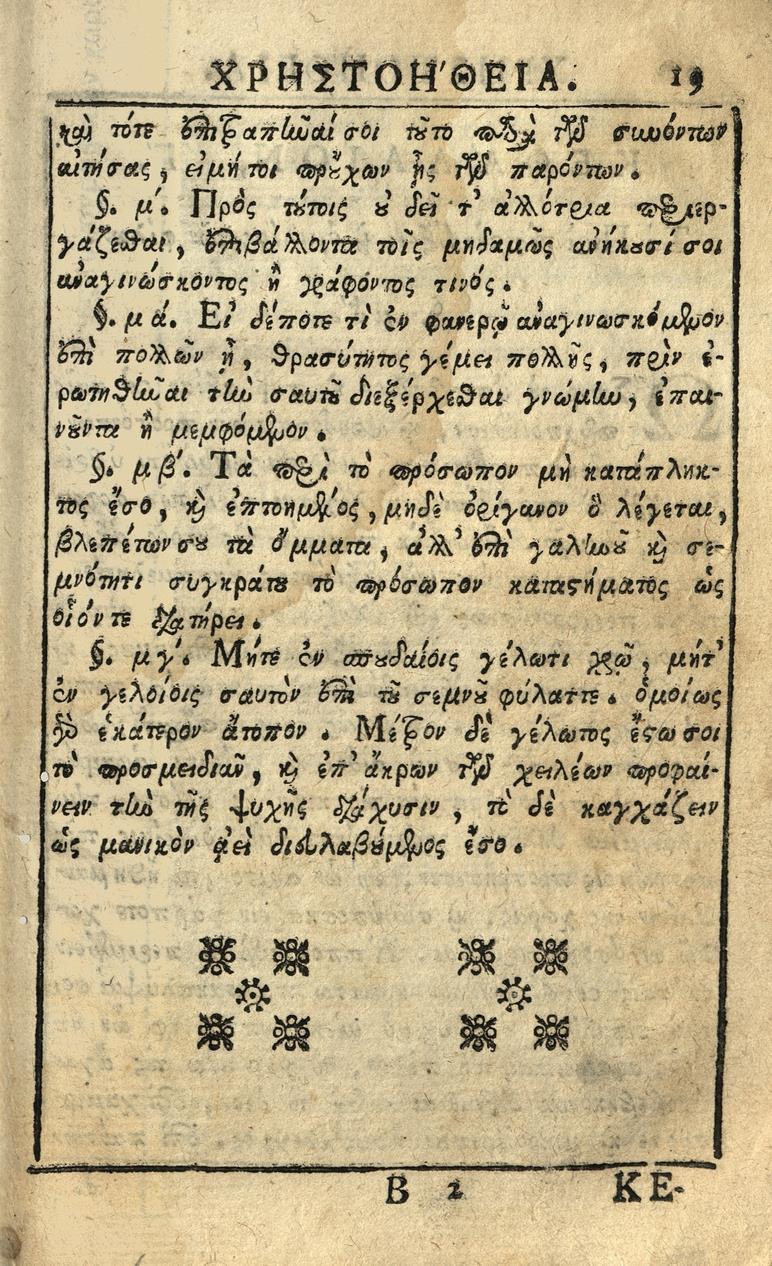 ΧΡΗΣΤΟΗ'ΘΕΙΑ. 19
καὶ τότε ἐπιξαπλῶσαί σοι τοῦτο παρὰ τῶν συνόντων
αἰτήσας, εἰμή τοι προὔχων ᾖς τῶν παρόντων.
§. μ΄. Πρὸς τούτοις οὐ δεῖ τ' ἀλλότρια περιερ-
γάζεσθαι, ἐπιβάλλοντα τοῖς μηδαμῶς ἀνήκουσί σοι
ἀναγινώσκοντος ἢ γράφοντος τινός.
§. μ ά. Εἰ δέποτε τὶ ἐν φανερῷ ἀναγινωσκόμενον
ἐπὶ πολλῶν ᾖ, θρασύτητος γέμει πολλῆς, πρὶν ἐ-
ρωτηθῆναι τὴν σαυτοῦ διεξέρχεσθαι γνώμην, ἐπαι-
νοῦντα ἢ μεμφόμενον.
§. μ β΄. Τὰ περὶ τὸ πρόσωπον μὴ κατάπληκ-
τος ἔσο, καὶ ἐπτοημένος, μηδὲ ὀρίγανον ὃ λέγεται,
βλεπέτων σου τὰ ὄμματα, ἀλλ' ἐπὶ γαλήνῃ καὶ σε-
μνότητι συγκράτου τὸ πρόσωπον καταστήματος ὡς
οἷόν τε διατήρει.
§. μ γ΄. Μήτε ἐν σπουδαίοις γέλωτι χρῶ, μήτ'
ἐν γελοίοις σαυτὸν ἐπὶ τοῦ σεμνοῦ φύλαττε. ὁμοίως
γὰρ ἑκάτερον ἄτοπον. Μέτρον δὲ γέλωτος ἔστω σοι
τὸ προσμειδιᾶν, καὶ ἐπ' ἄκρων τῶν χειλέων προφαί-
νειν τὴν τῆς ψυχῆς διάχυσιν, τὸ δὲ καγχάζειν
ὡς μανικὸν ἀεὶ διευλαβούμενος ἔσο.
Β 2 ΚΕ-